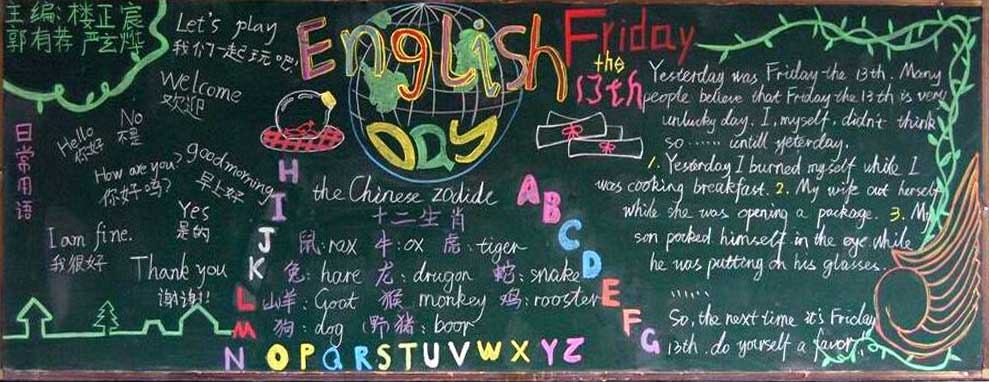 主编：楼正宸
郭有荐 严玄烨
Let's play
我们一起玩吧.
Welcome
欢迎
日常用语
Hello
你好
No
不是
How are you?
你好吗?
good morning
早上好
Yes
是的
I am fine.
我很好
Thank you
谢谢!
English
Day
the Chinese zodide
十二生肖
鼠: rax 牛: ox 虎: tiger
兔: hare 龙: drugon 蛇: snake
山羊: Goat 猴 monkey 鸡: rooster
狗: dog (野猪: boor
A
B
C
D
E
F
G
H
I
J
K
L
M
N
O P Q R S T U V W X Y Z
Friday
the
13th
Yesterday was Friday the 13th. Many
people believe that Friday the 13th is very
unlucky day. I, myself, didn't think
so ...... untill yeterday.
1. Yesterday I burned myself while I
was cooking breakfast. 2. My wife out herself
while she was opening a package. 3. My
son pocked himself in the eye while
he was putting on his glasses.
......
So, the next time it's Friday
13th. do yourself a favor